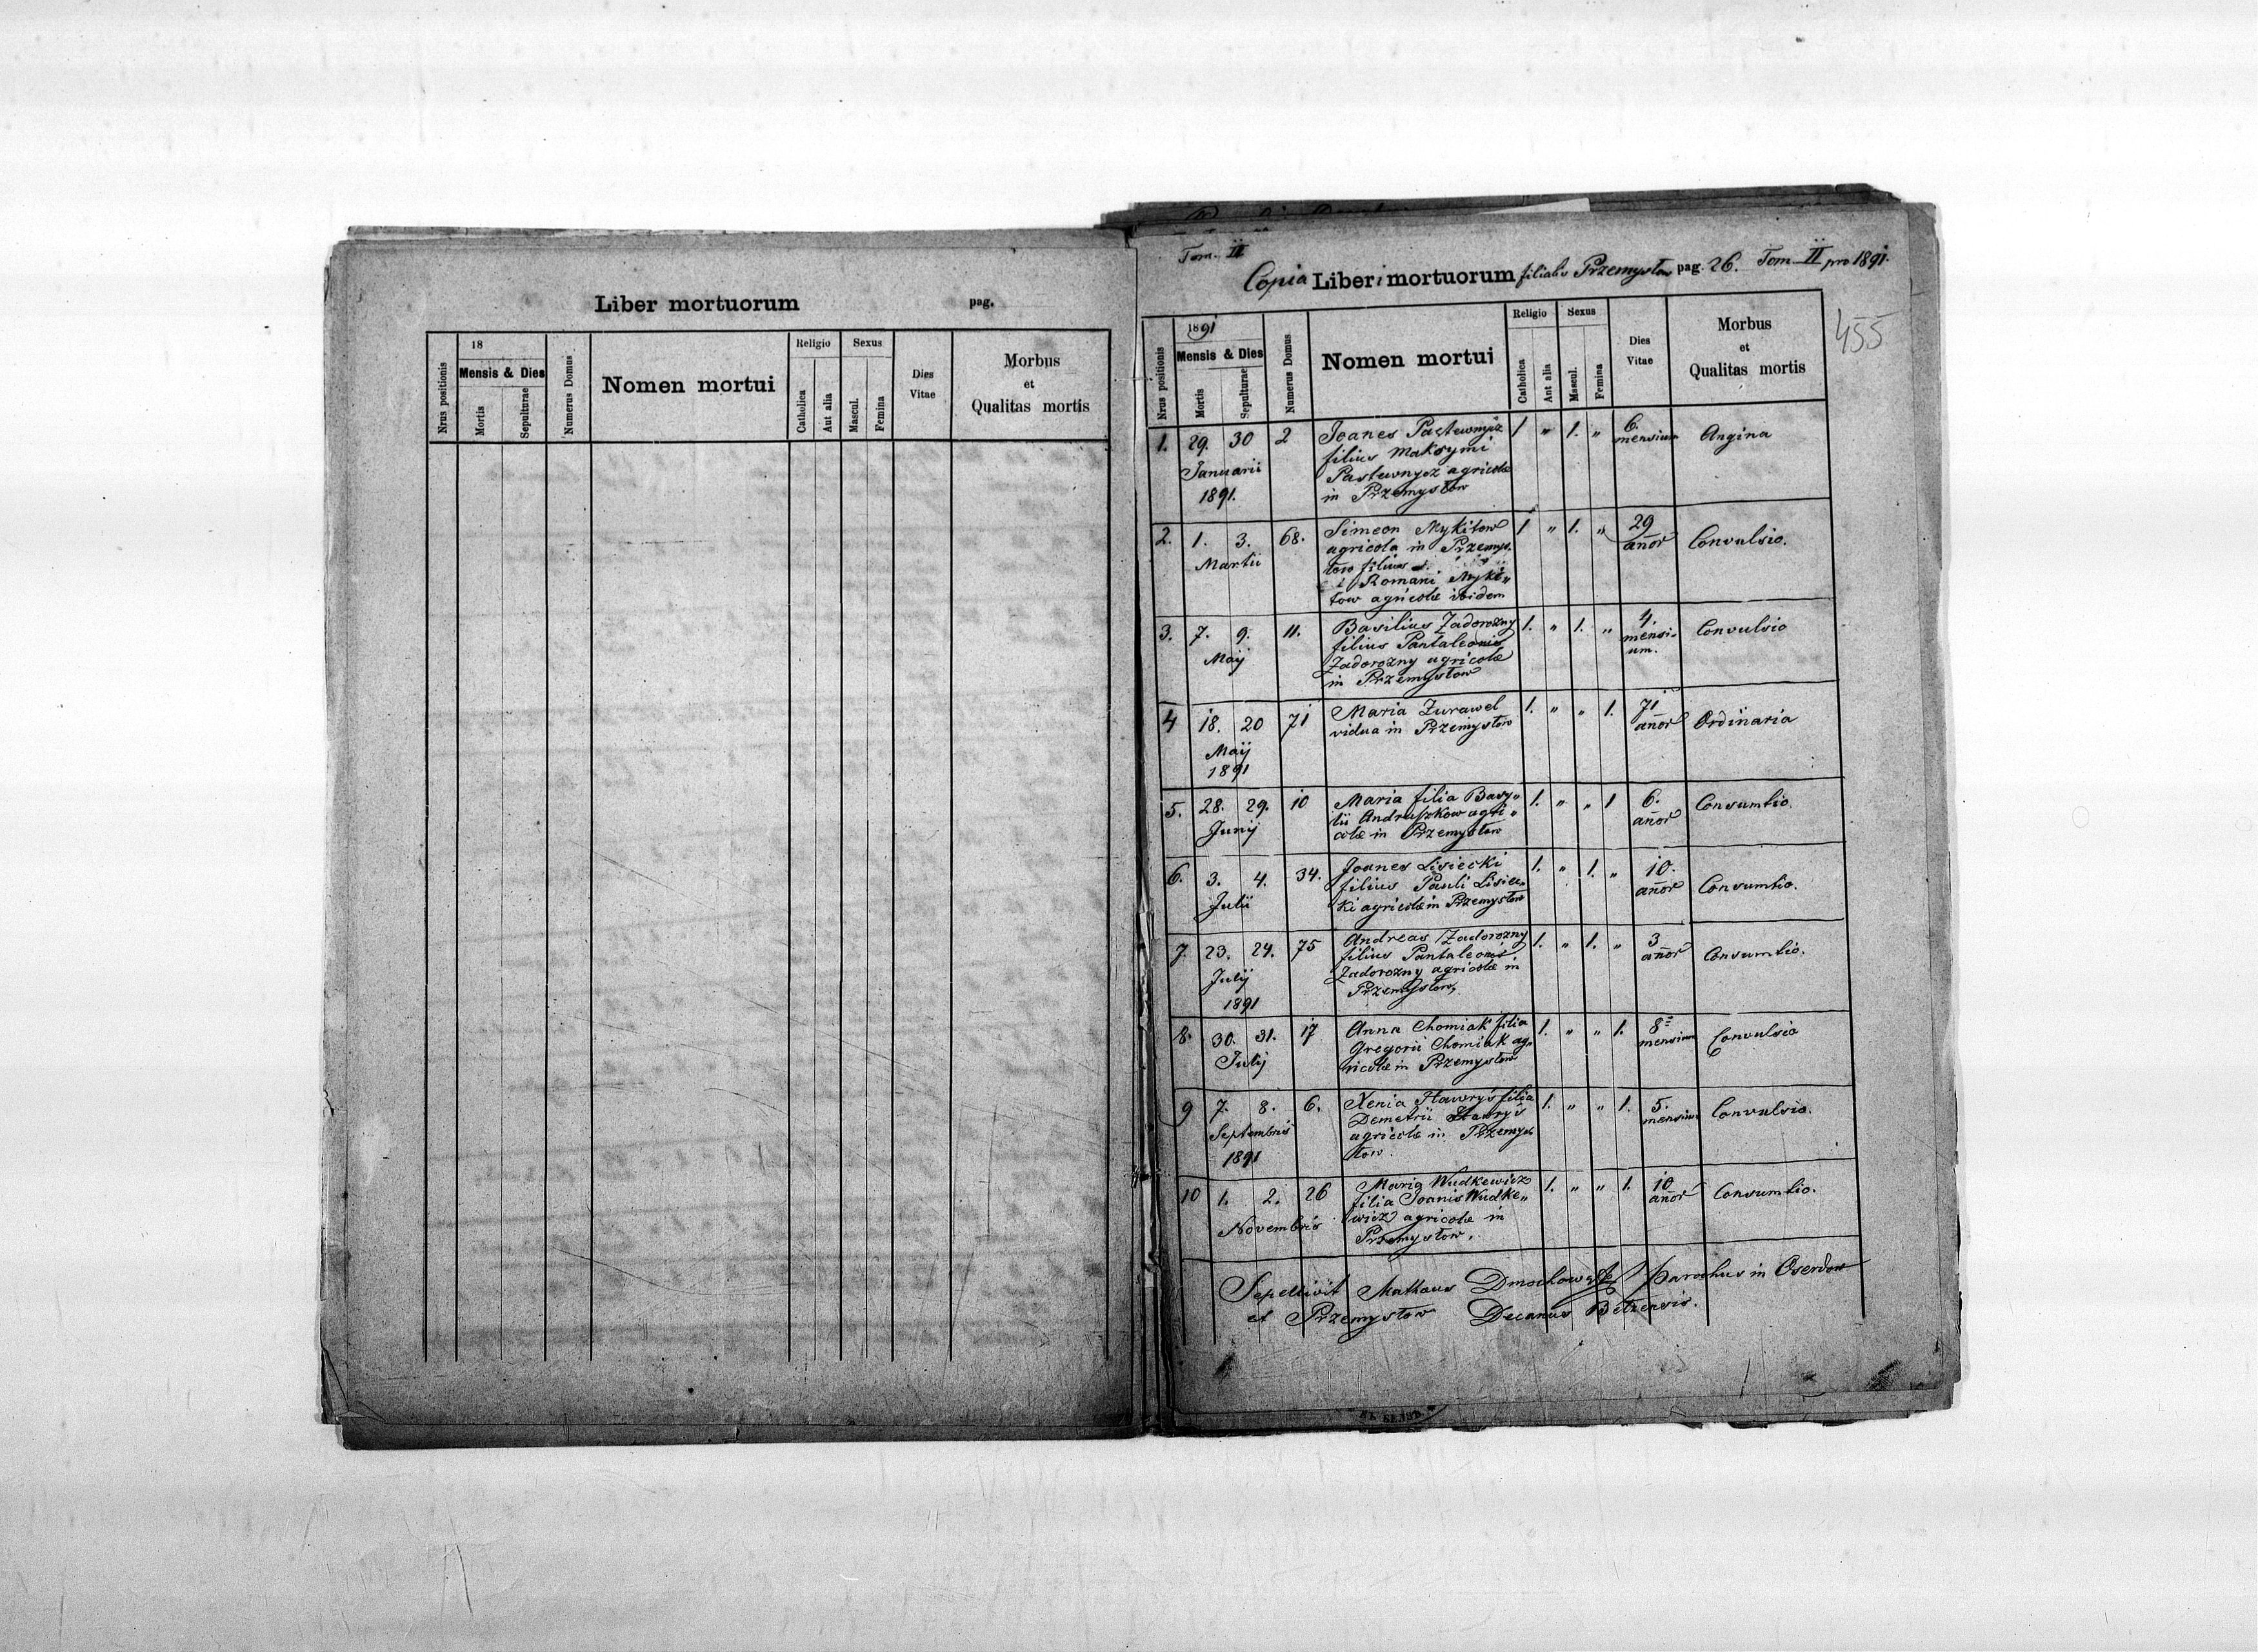 Liber mortuorum pag.
Nrus positionis
18
Mensis & Dies
Mortis
Sepulturae
Numerus Domus
Nomen mortui
Religio
Catholica
Aut alia
Sexus
Mascul.
Femina
Dies
Vitae
Morbus
et
Qualitas mortis
Tom. II
Copia Liberi mortuorum filialis Przemysłow pag. 26. Tom II pro 1891.
455
Nrus positionis
1891
Mensis & Dies
Mortis
Sepulturae
Numerus Domus
Nomen mortui
Religio
Catholica
Aut alia
Sexus
Mascul.
Femina
Dies
Vitae
Morbus
et
Qualitas mortis
1. 29. 30 2 Joanes Pastewnycz 1 " 1. " 6. Angina
mensium
filius Maksymi
Januarii
Pastewnycz agricolæ
1891.
in Przemysłow
2. 1. 3. 68. Simeon Mykitow 1 " 1. " 29 Convulsio.
agricola in Przemys. añor
Martii
łow filius
Romani Myki„
tow agricolæ ibidem
3. 7. 9. 11. Basilius Zadorozny 1. " 1. " 4. Convulsio
filius Pantaleonis mensi„
Maij
um.
Zadorozny agricolæ
in Przemysłow
4 18. 20 71 Maria Zurawel 1. " " 1. 71 Ordinaria
vidua in Przemysłow añor
Maij
1891
5. 28. 29. 10 Maria filia Basy„ 1. " " 1 6. Consumtio.
lii Andruszkow agri„ añor
Junij
colæ in Przemysłow
6. 3. 4. 34. Joanes Lisiecki 1. " 1. " 10. Consumtio.
filius Pauli Lisiec„ añor
Julii
ki agricolæ in Przemysłow
7. 23. 24. 75 Andreas Zadorozny 1. " 1. " 3 Consumtio.
filius Pantaleonis añor
Julij
Zadorozny agricolæ in
1891
Przemysłow,
8. 30. 31. 17 Anna Chomiak filia 1. " " 1. 8 Convulsio
Gregorii Chomiak ag„ mensium
Julij
ricolæ in Przemysłow
9 7. 8. 6. Xenia Hawryś filia 1. " " 1. 5. Convulsio.
Demetrii Hawryś mensium
Septembris
agricolæ in Przemys
1891
łow.
10 1. 2. 26 Maria Wudkewicz 1. " " 1. 10 Consumtio.
filia Joanis Wudke„ añor
Novembris
wicz agricolæ in
Przemysłow.
Sepelivit Mathæus Dmochowski parochus in Oserdow
et Przemysłow Decanus Belzensis.